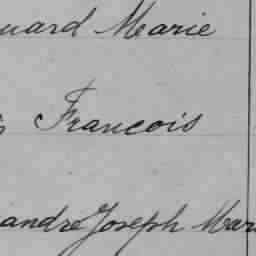 uard Marie
s François
andre Joseph Mari